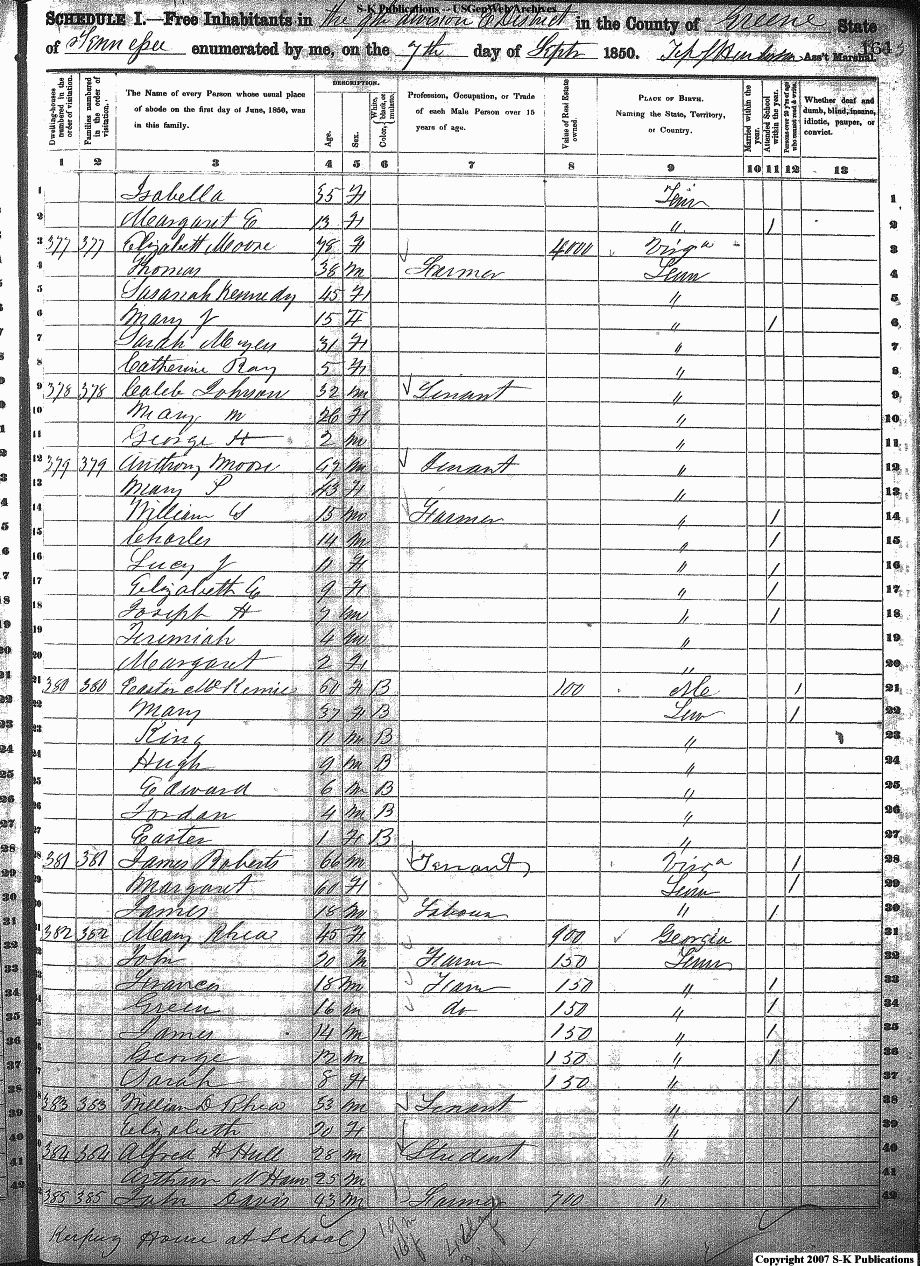 S-K Publications -- USGenWeb Archives
SCHEDULE I.—Free Inhabitants in the 9th division E District in the County of Greene State
of Tennessee enumerated by me, on the 7th day of Septr 1850. Ass't Marshal. 164
Dwelling-houses numbered in the order of visitation.
Families numbered in the order of visitation.
The Name of every Person whose usual place of abode on the first day of June, 1850, was in this family.
DESCRIPTION.
Age.
Sex.
Color, White, black, or mulatto.
Profession, Occupation, or Trade of each Male Person over 15 years of age.
Value of Real Estate owned.
PLACE OF BIRTH. Naming the State, Territory, or Country.
Married within the year.
Attended School within the year.
Persons over 20 y'rs of age who cannot read & write.
Whether deaf and dumb, blind, insane, idiotic, pauper, or convict.
1 2 3 4 5 6 7 8 9 10 11 12 13
1 Isabella 35 F Tenn 1
2 Margaret E 13 F " / 2
3 377 377 Elizabeth Moore 78 F 4000 Virga 3
4 Thomas 38 m Farmer Tenn 4
5 Kennedy 45 F " 5
6 Mary J 15 F " / 6
7 Sarah 31 F " 7
8 Catherine Ray 5 F " 8
9 378 378 Caleb Johnson 32 m Tenant " 9
10 Mary m 26 F " 10
11 George H 2 m " 11
12 379 379 Anthony Moore m Tenant " 12
13 Mary S 43 F " 13
14 William 15 m Farmer " / 14
15 Charles 14 m " / 15
16 Lucy J 11 F " / 16
17 Elizabeth E 9 F " / 17
18 Joseph H 7 m " / 18
19 Jeremiah 4 m " 19
20 Margaret 2 F " 20
21 380 380 Easter 60 F B 100 / 21
22 Mary 37 F B Tenn / 22
23 King 11 m B " 23
24 Hugh 9 m B " 24
25 Edward 6 m B " 25
26 Jordan 4 m B " 26
27 Easter 1 F B " 27
28 381 381 James Roberts 66 m Tenant Virga / 28
29 Margaret 60 F Tenn / 29
30 James 18 m Labour " / 30
31 382 382 Mary Rhea 45 F 900 Georgia 31
32 John 20 m Farm 150 Tenn 32
33 Frances 18 m Farm 150 " / 33
34 Green 16 m do 150 " / 34
35 James 14 m 150 " / 35
36 George 12 m 150 " / 36
37 Sarah 8 F 150 " 37
38 383 383 William D Rhea 53 m Tenant " / 38
39 Elizabeth 20 F " 39
40 384 384 Alfred H Hull 28 m Student " 40
41 Arthur N 25 m " 41
42 385 385 John Davis 43 m Farmer 700 " 42
Keeping House at School)
Copyright 2007 S-K Publications